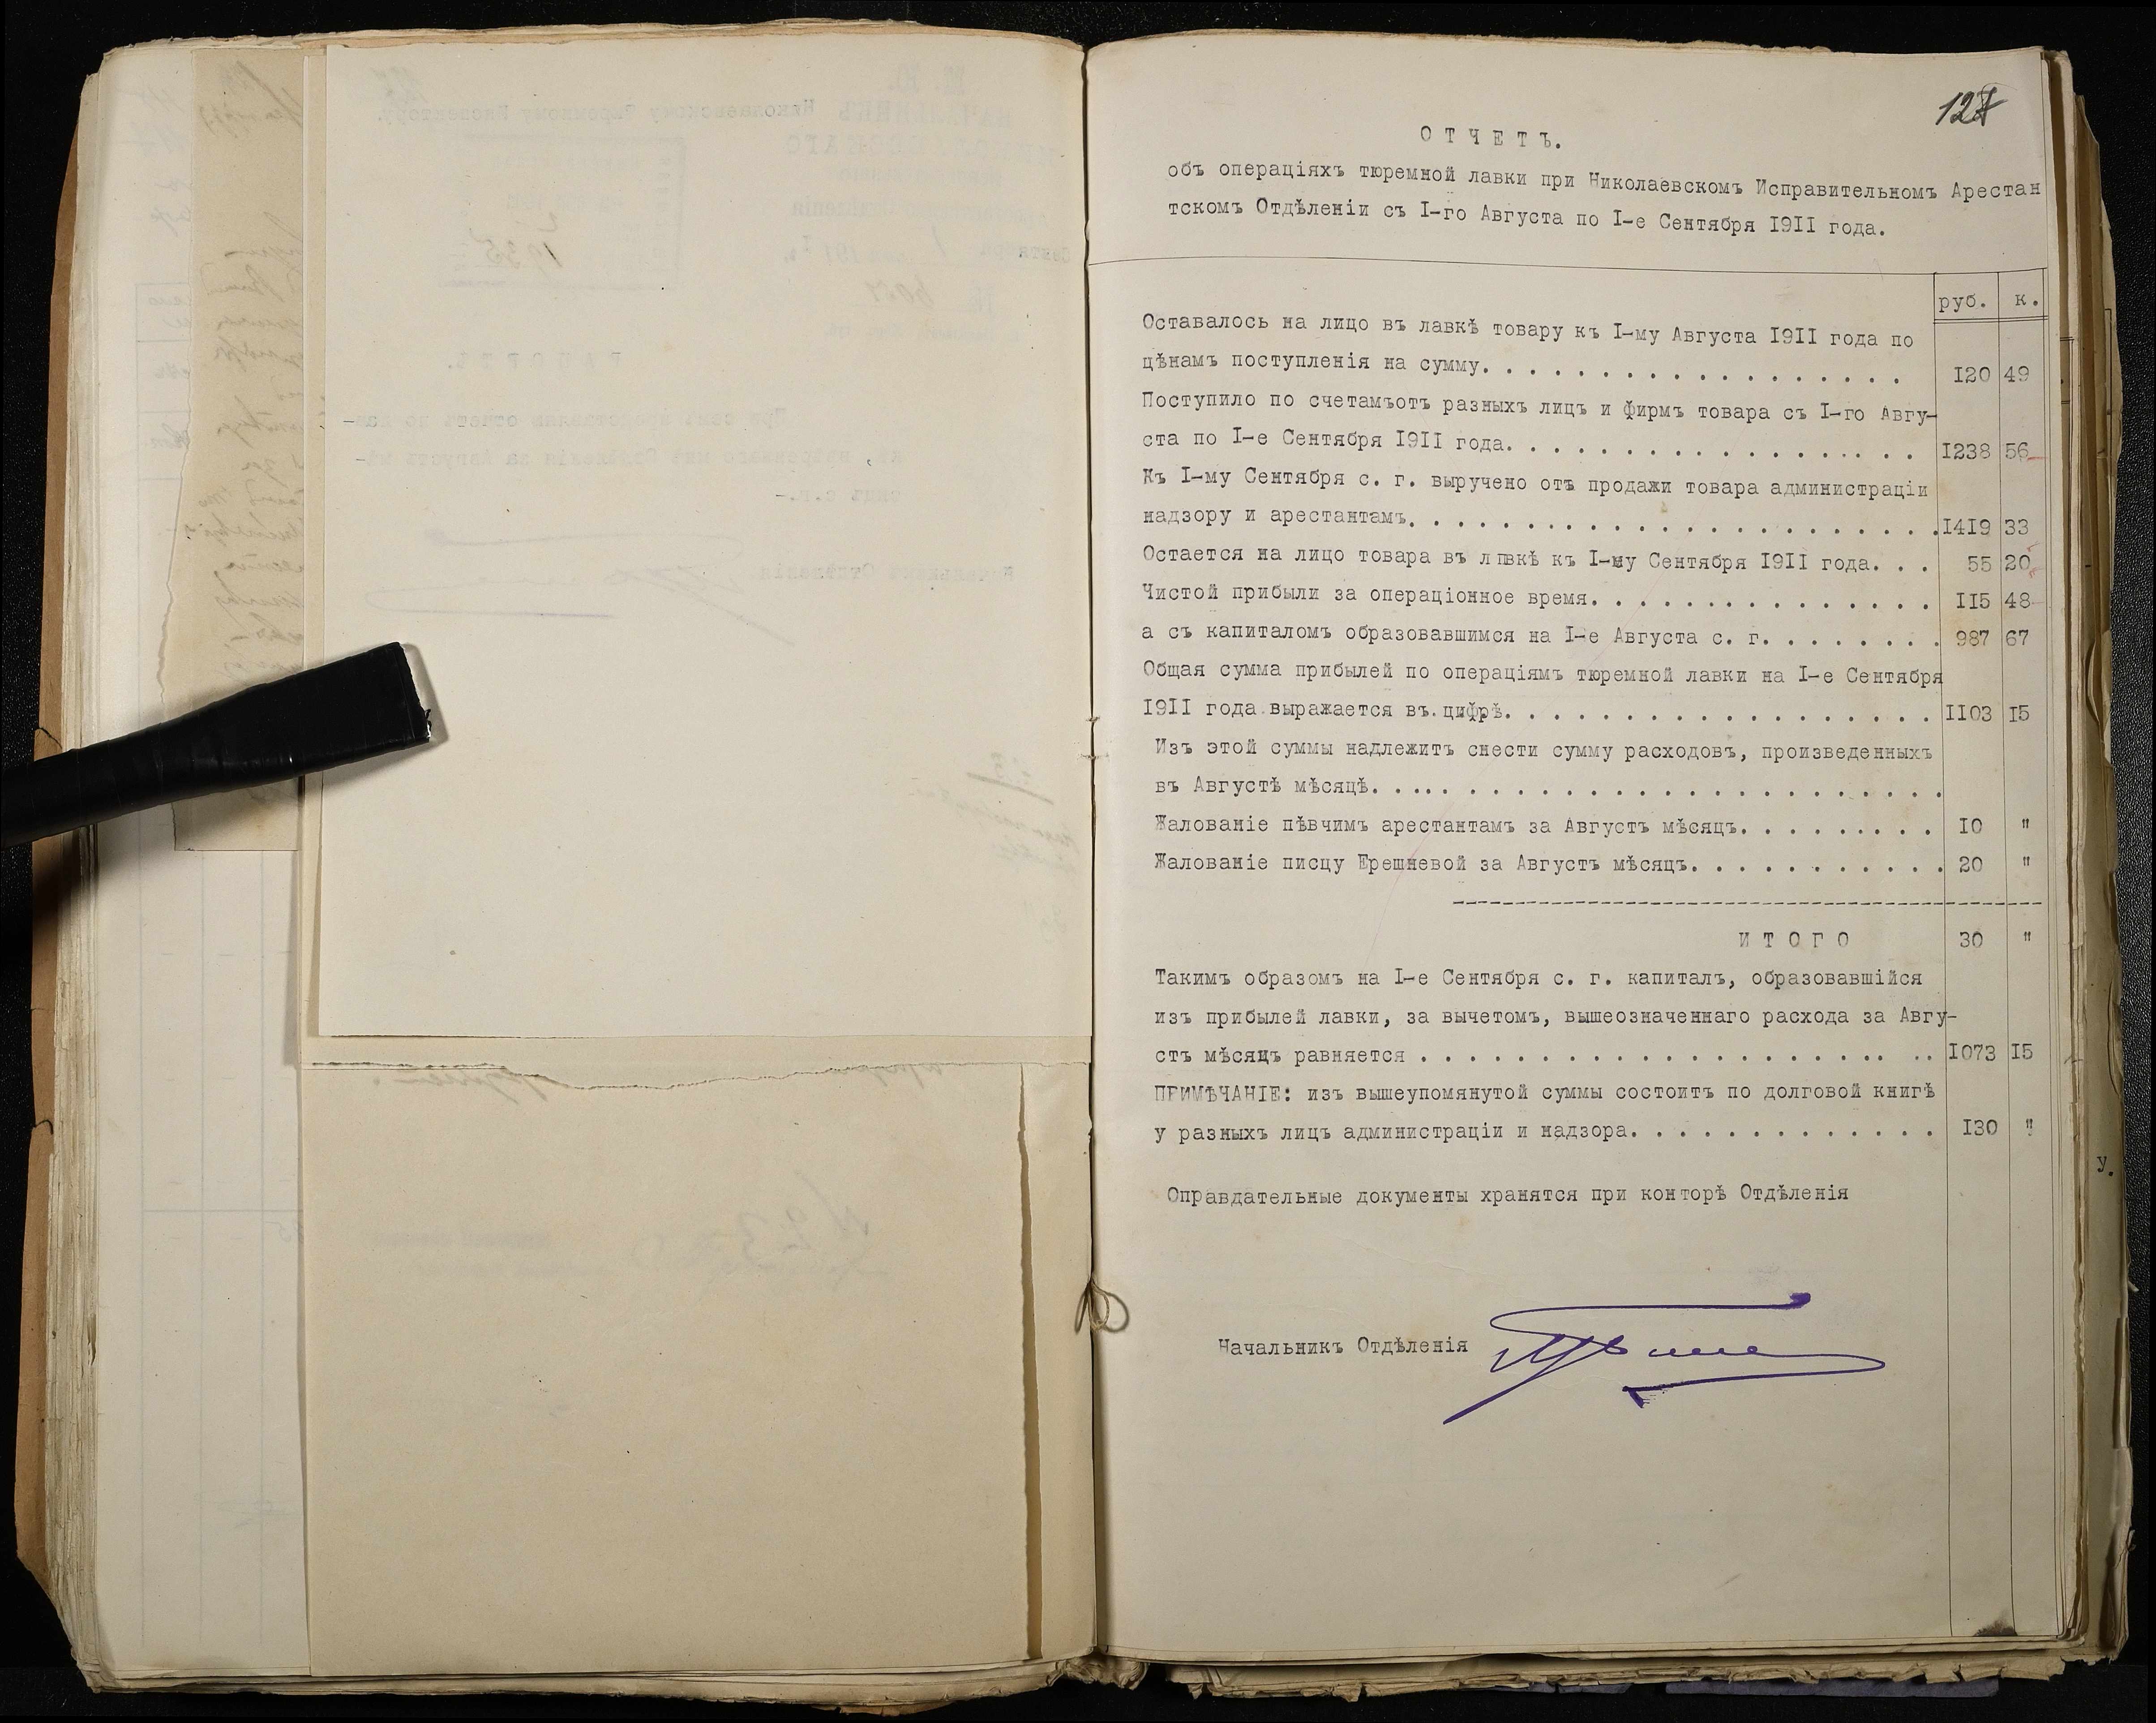 127
ОТЧЕТЪ.
объ операціяхъ тюремной лавки при Николаевскомъ Исправительномъ Арестан
тскомъ Отдѣленіи съ I-го Августа по I-е Сентября I9II года.
руб. к.
Оставалось на лицо въ лавкѣ товару къ I-му Августа I9II года по
цѣнамъ поступленія на сумму. . . . . . . . . . . . . . . . . . I20 49
Поступило по счетамъотъ разныхъ лицъ и фирмъ товара съ I-го Авгу-
ста по I-е Сентября I9II года. . . . . . . . . . . . . . . . . . I238 56
Къ I-му Сентября с. г. выручено отъ продажи товара администраціи
надзору и арестантамъ. . . . . . . . . . . . . . . . . . . . . . . I4I9 33
Остается на лицо товара въ лавкѣ къ I-му Сентября I9II года. . . 55 20
Чистой прибыли за операціонное время. . . . . . . . . . . . . . . II5 48
а съ капиталомъ образовавшимся на I-е Августа с. г. . . . . . . . 987 67
Общая сумма прибылей по операціямъ тюремной лавки на I-е Сентября
I9II года выражается въ цифрѣ. . . . . . . . . . . . . . . . . . . II03 I5
Изъ этой суммы надлежитъ снести сумму расходовъ, произведенныхъ
въ Августѣ мѣсяцѣ. . . . . . . . . . . . . . . . . . . . . . . . .
Жалованіе пѣвчимъ арестантамъ за Августъ мѣсяцъ. . . . . . . . . I0 "
Жалованіе писцу Ерешневой за Августъ мѣсяцъ. . . . . . . . . . . 20 "
ИТОГО 30 "
Такимъ образомъ на I-е Сентября с. г. капиталъ, образовавшійся
изъ прибылей лавки, за вычетомъ, вышеозначеннаго расхода за Авгу-
стъ мѣсяцъ равняется . . . . . . . . . . . . . . . . . . . . . . I073 I5
ПРИМѢЧАНІЕ: изъ вышеупомянутой суммы состоитъ по долговой книгѣ
у разныхъ лицъ администраціи и надзора. . . . . . . . . . . . . . I30 "
Оправдательные документы хранятся при конторѣ Отдѣленія
Начальникъ Отдѣленія